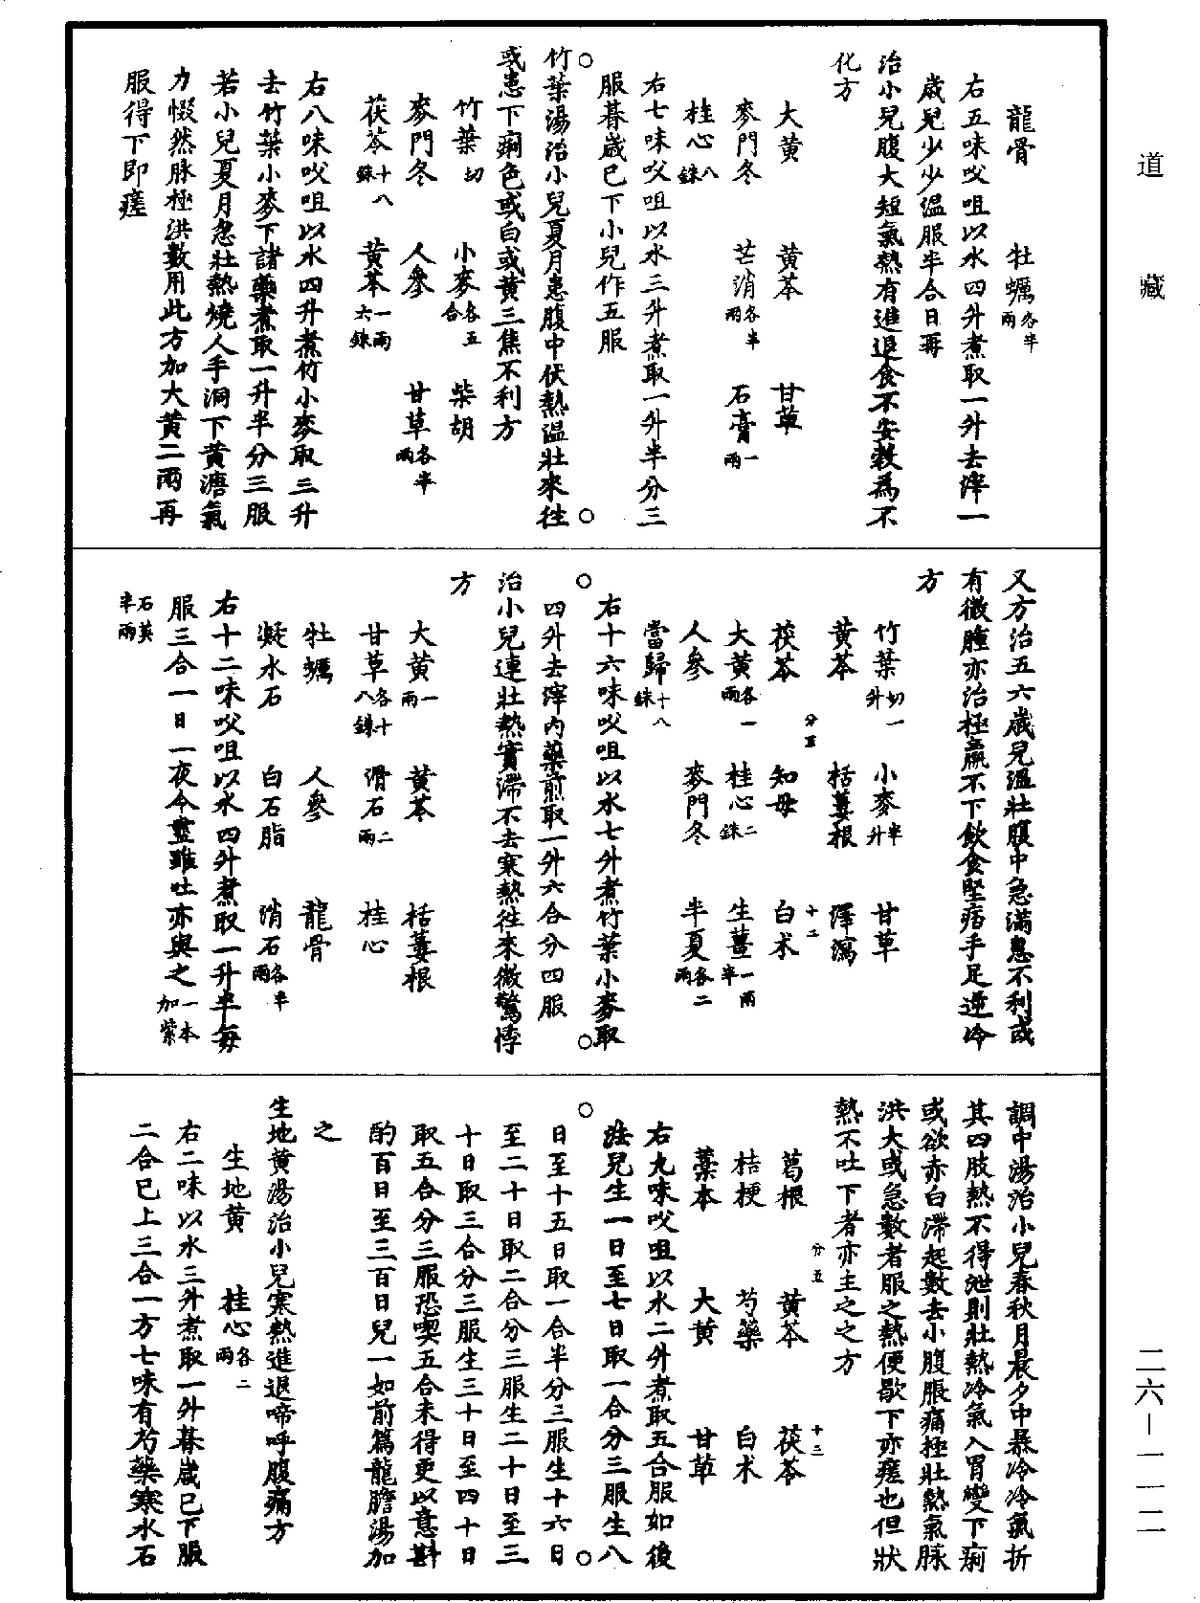 道藏
龍骨　牡蠣各半兩
右五味㕮咀以水四升煮取一升去滓一
歲兒少少溫服半合日再
治小兒腹大短氣熱有進退食不安穀為不
化方
大黃　黃芩　甘草
麥門冬　芒消各半兩　石膏一兩
桂心八銖
右七味㕮咀以水三升煮取一升半分三
服暮歲已下小兒作五服
竹葉湯治小兒夏月患腹中伏熱溫壯來往
或患下痢色或白或黃三焦不利方
竹葉切　小麥各五合　柴胡
麥門冬　人參　甘草各半兩
茯苓十八銖　黃芩一兩六銖
右八味㕮咀以水四升煮竹小麥取三升
去竹葉小麥下諸藥煮取一升半分三服
若小兒夏月忽壯熱燒人手洞下黃溏氣
力惙然脉極洪數用此方加大黃二兩再
服得下即瘥
又方治五六歲兒溫壯腹中急滿息不利或
有微腫亦治極羸不下飲食堅痞手足逆冷
方
竹葉切一升　小麥半升　甘草
黃芩　栝蔞根　澤瀉
茯苓　知母　白朮
大黃各一兩　桂心二銖　生薑一兩半
人參　麥門冬　半夏各二兩
當歸十八銖
右十六味㕮咀以水七升煮竹葉小麥取
四升去滓內藥煎取一升六合分四服
治小兒連壯熱實滯不去寒熱往來微驚悸
方
大黃一兩　黃芩　栝蔞根
甘草各十八銖　滑石二兩　桂心
牡蠣　人參　龍骨
凝水石　白石脂　消石各半兩
右十二味㕮咀以水四升煮取一升半每
服三合一日一夜令盡雖吐亦與之一本加紫
石英半兩
調中湯治小兒春秋月晨夕中暴冷冷氣折
其四肢熱不得泄則壯熱冷氣入胃變下痢
或欲赤白滯起數去小腹脹痛極壯熱氣脉
洪大或急數者服之熱便歇下亦瘥也但狀
熱不吐下者亦主之之方
葛根　黃芩　茯苓
桔梗　芍藥　白朮
藁本　大黃　甘草
右九味㕮咀以水二升煮取五合服如後
法兒生一日至七日取一合分三服生八
日至十五日取一合半分三服生十六日
至二十日取二合分三服生二十日至三
十日取三合分三服生三十日至四十日
取五合分三服恐喫五合未得更以意斟
酌百日至三百日兒一如前篇龍膽湯加
之
生地黃湯治小兒寒熱進退啼呼腹痛方
生地黃　桂心各二兩
右二味以水三升煮取一升暮歲已下服
二合已上三合一方七味有芍藥寒水石
二六—一一二
分五
十二
分五
十三